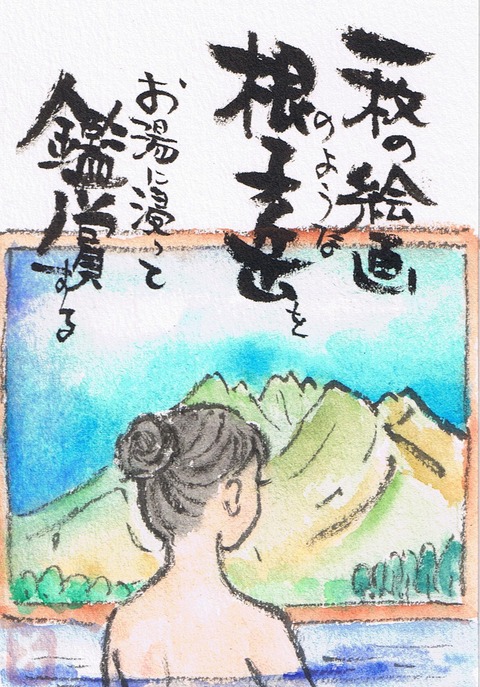 一枚の絵画
のような
根子岳を
お湯に浸って
鑑賞する